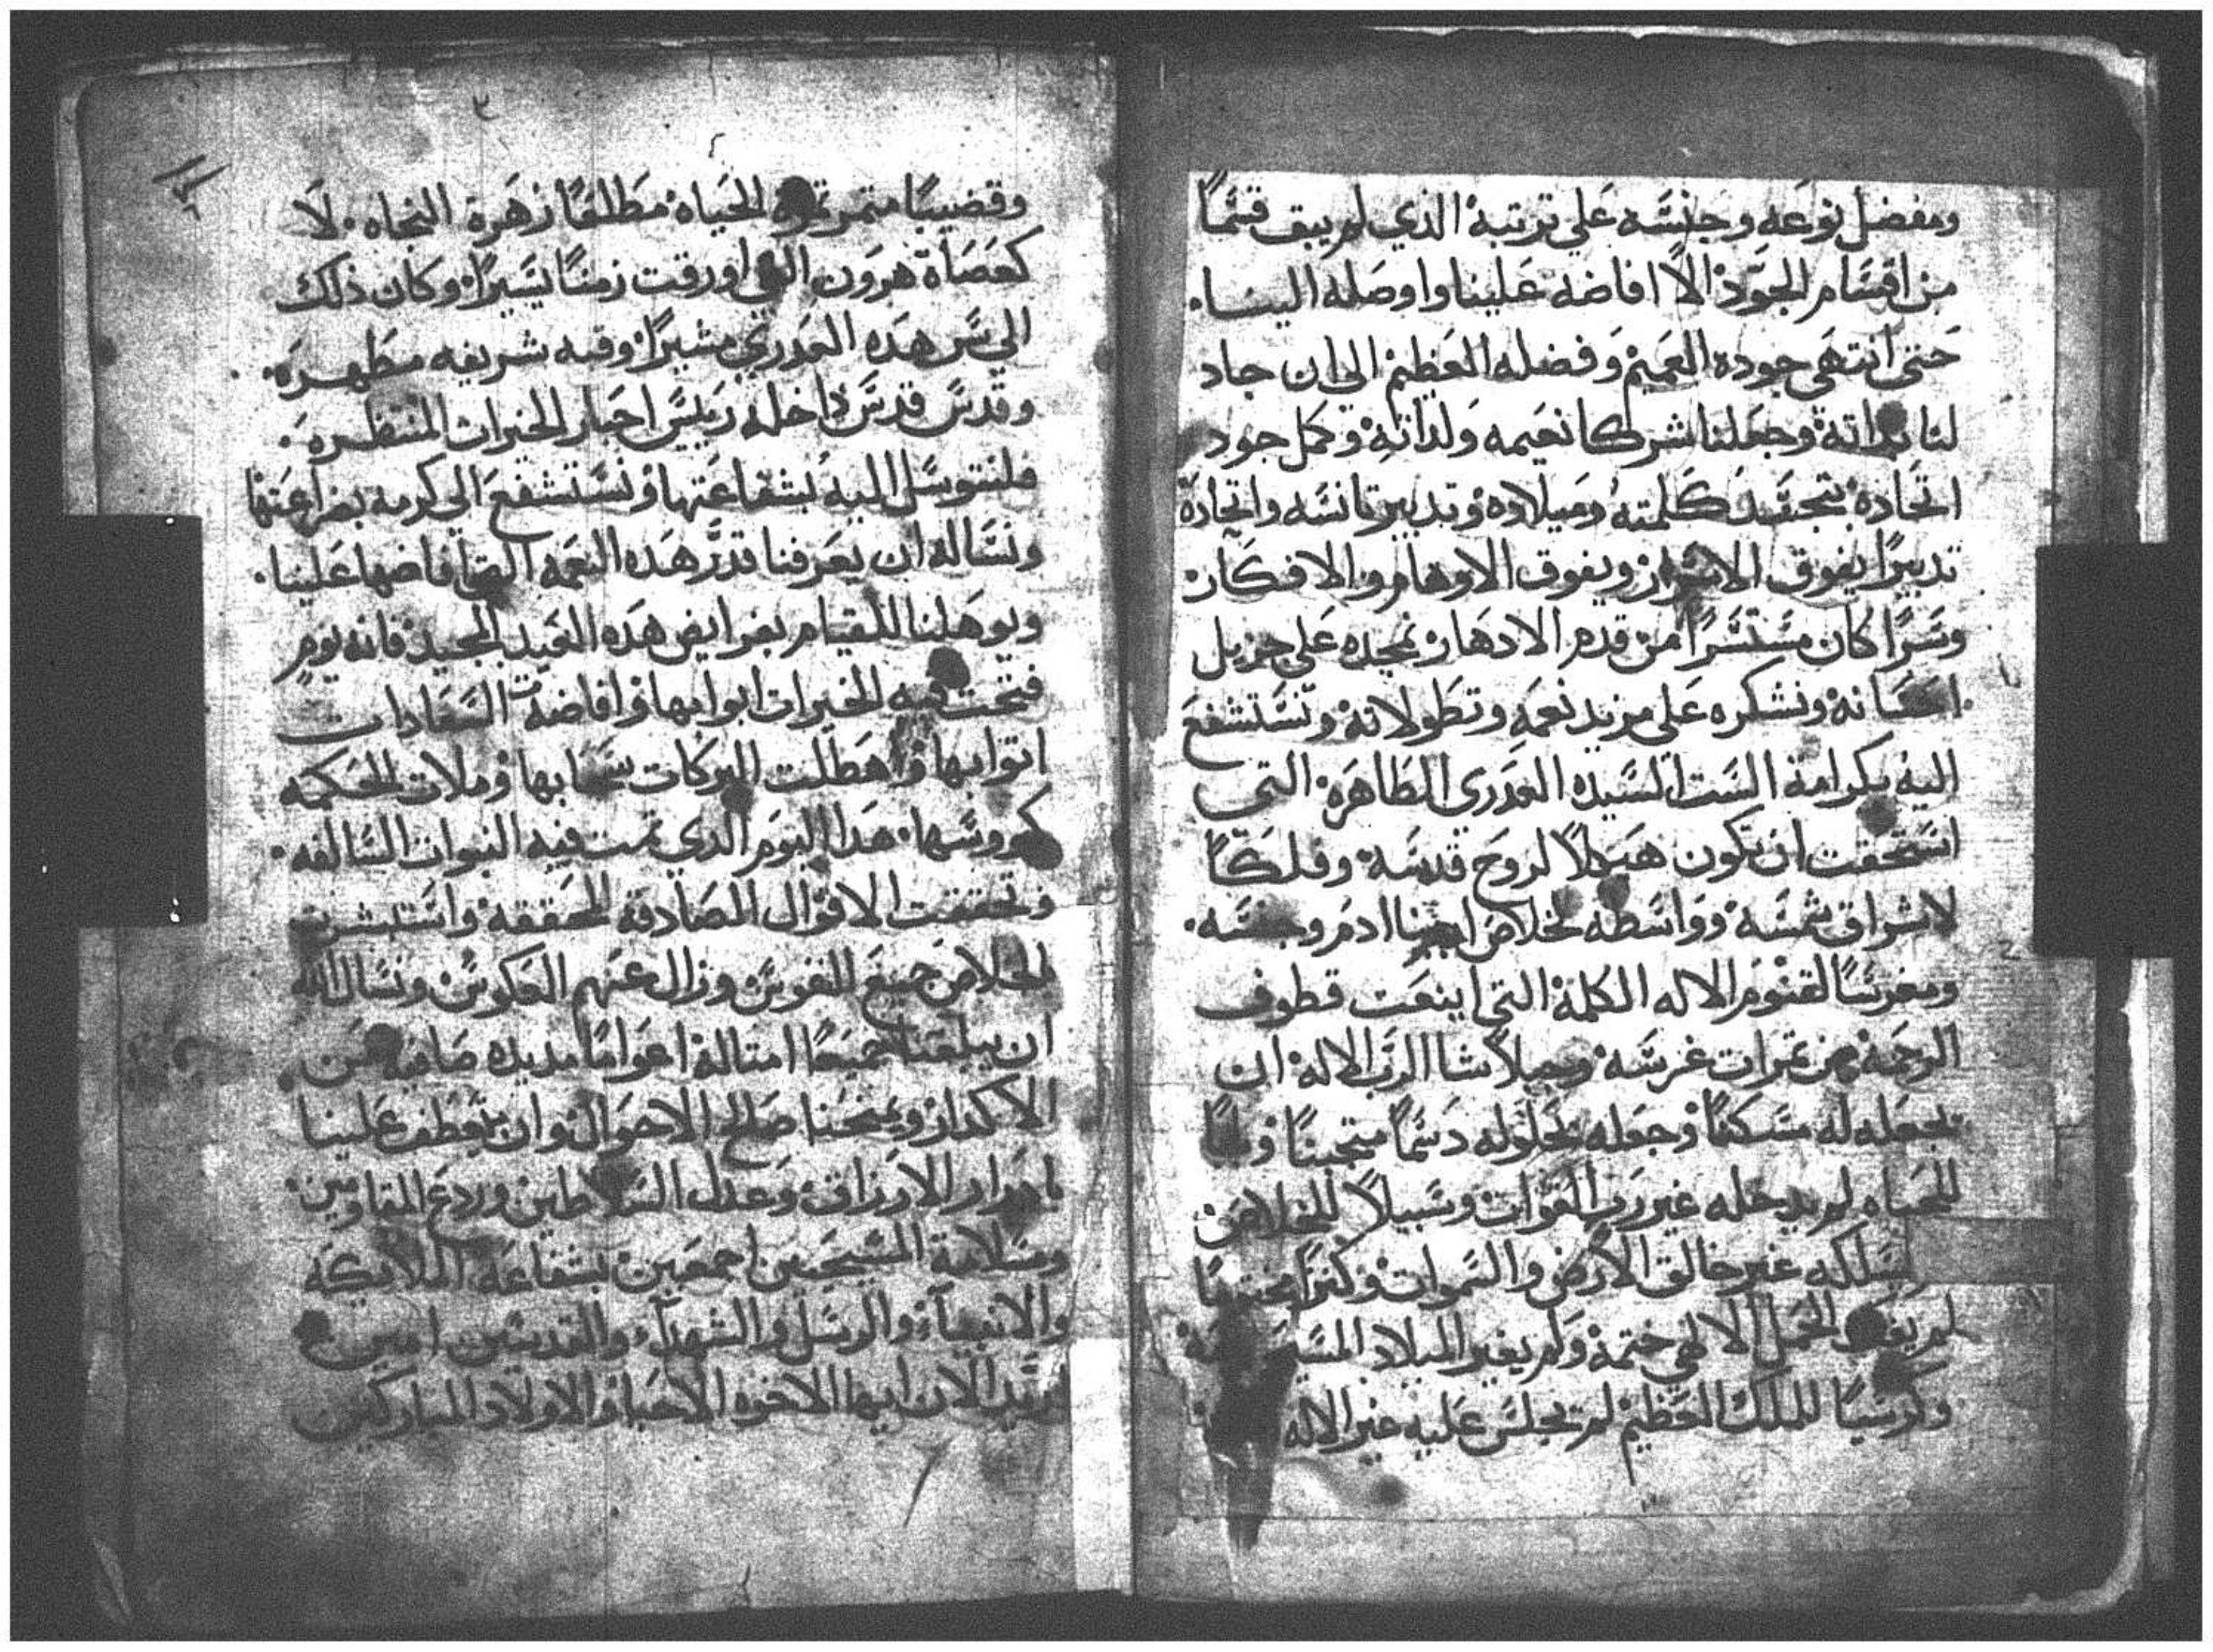 ومفضل نوعه وجنسه علي تربته الذي لم يبق قسمًا
من اقسام الجود الا افاضه علينا واوصله الينا
حتي انتهي جوده العميم وفضله العظيم الي ان جاد
لنا بداته وجعلنا شركا نعيمه ولداته وكمل جود
اتحاده بتجسد كلمته وميلاده وتدبير تانسه واتحاده
تدبيرًا يفوق الاسرار ويفوق الاوهام والافكار
وسرًا كان مستسرًا من قدم الادهار نمجده علي جزيل
احسانه ونشكره علي مزيد نعمه وتطولاته ونستشفع
اليه بكرامة الست السيده العدري الطاهره التي
استحقت ان تكون هيكلًا لروح قدسه وفلكًا
لاشراق شمسه وواسطه لخلاص ابينا ادم وجنسه
ومغرسًا لقنوم الاله الكلمة التي اينعت قطوف
الرحمة من تمرات غرسه وجبلًا شا الرب الاله ان
يجعله له مسكنًا وجعله بحلوله دسمًا متجبنًا وبابًا
للحياه لم يدخله غير رب القوات وسبيلًا للخلاص
يسلكه غير خالق الارض والسموات وكنزًا مختومًا
لم يفك الحمل الالهي ختمه ولم يغير الميلاد
وكرسيًا للملك العظيم لم يجلس عليه غير الاله
وقضيبًا متمر تمرة الحياه مطلعًا زهرة النجاه لا
كعصاة هرون التي اورقت زمنًا يسيرًا وكان ذلك
الي سر هده العدري مشيرًا وقبه شريفه مطهره
وقدس قدس داخله رييس احبار الخيرات المنتظره
فلنتوسل اليه بشفاعتها ونستشفع الي كرمه بضراعتها
ونساله ان يعرفنا قدر هده النعمه التي افاضها علينا
ويوهلنا للقيام بفرايض هده العيد المجيد فانه يوم
فتحت فيه الخيرات ابوابها وافاضة السعادات
اتوابها وهطلت البركات سحابها وملات الحكمه
كووسها هدا اليوم الدي تمت فيه النبوات السالفه
وتحققت الاقوال الصادقه المحققه واستبشرت
الخلاص جميع النفوس وزال عنهم العكوس ونسال الله
ان يبلغنا جميعًا امتاله اعوامًا مديده صافيه من
الاكدار ويمنحنا صالح الاحوال وان يتعطف علينا
بادرار الارزاق وعدل السلاطين وردع المقاومين
وسلامة المسيحيين اجمعين بشفاعة الملايكه
والانبياء والرسل والشهداء والقديسين امين
نريد الان ايها الاخوه الاحبا والاولاد المباركين